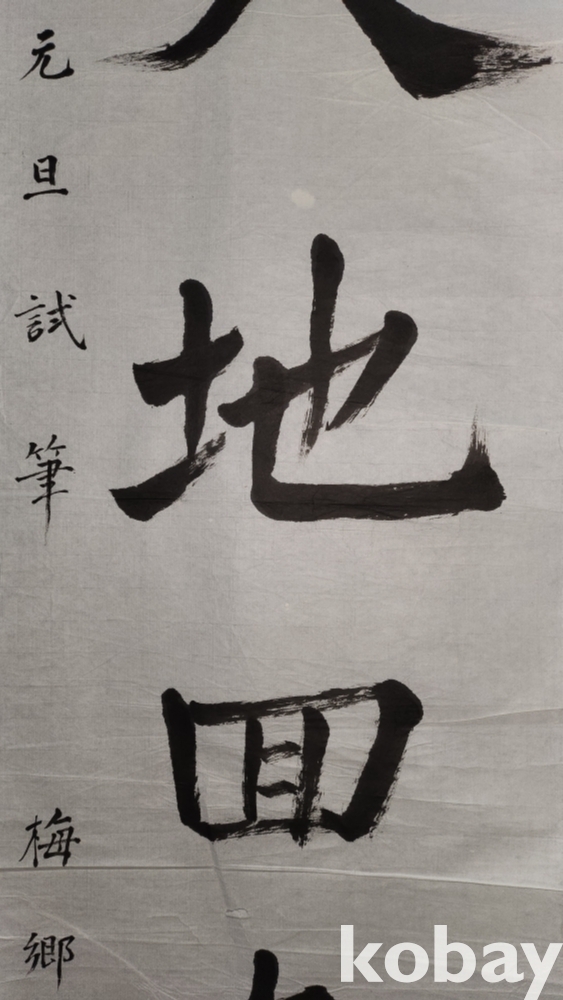 地囬
元旦試筆 梅鄉
kobay